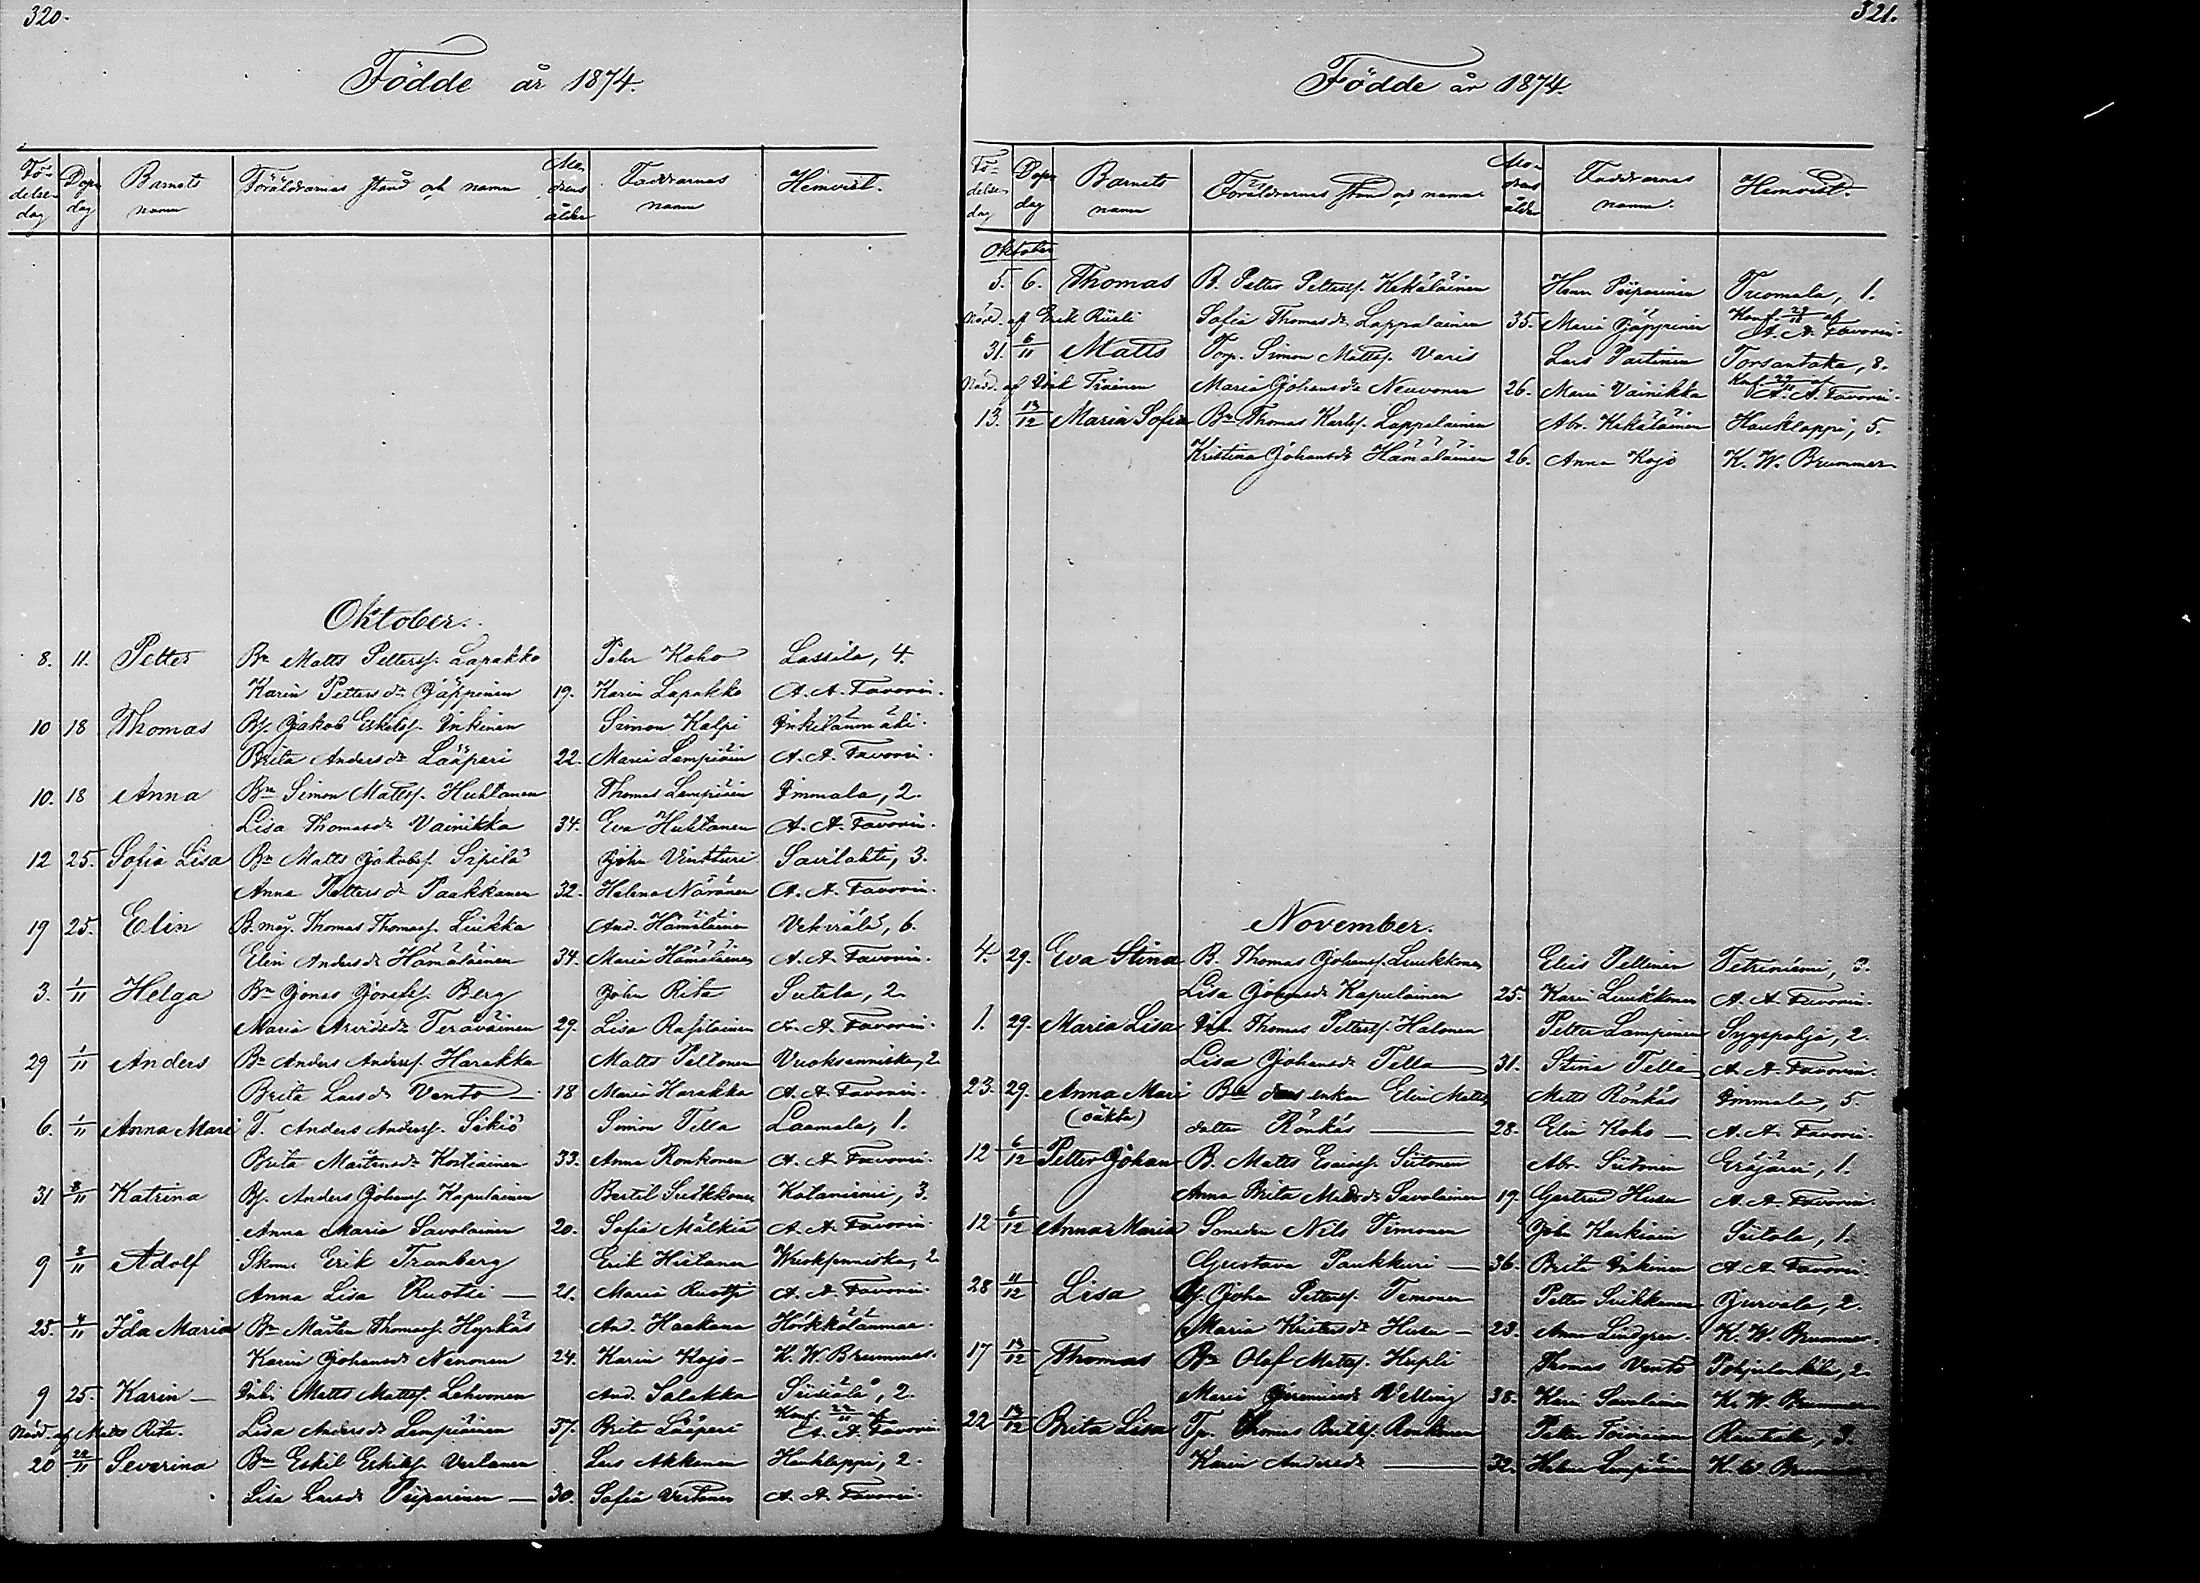 320.
Födde år 1874.
Fö-delse-dag Dop dag Barnets namn Föräldrarnas stånd och namn Mo-drens ålder Faddrarnas namn Hemvist.
Oktober.
8. 11. Petter Bn Matts Pettersf. Lapakko Peter Koho Lassila, 4.
Karin Pettersdr Jäppinen 19. Karin Lapakko A. A. Favorin.
10 18 Thomas Bf. Jakob Eskelsf. Inkinen Simon Kalpi Inkilänmäki.
Brita Andersdr Lääperi 22. Maria Lampiäin A. A. Favorin.
10. 18 Anna Bn Simon Mattsf. Huhtanen Thomas Lempiäin Immala, 2.
Lisa Thomasdr Vainikka 34. Eva Huhtanen A. A. Favorin.
12 25. Sofia Lisa Bn Matts Jakobsf. Sipilä John Vinkturi Sairlahti, 3.
Anna Pettersdr Paakkanen 32. Helena Näränen A. A. Favorin.
19 25. Elin B. måg. Thomas Thomasf. Liukka And. Hämäläinen Vekrälä, 6.
Elin Andersdr Hämäläinen 34. Maria Hämäläinen A. A. Favorin.
3. 1/11 Helga Bn Jonas Jonasf. Berg John Rita Sutela, 2.
Maria Arvidsdr Teräväinen 29. Lisa A. A. Favorin.
29 1/11 Anders Bn Anders Andersf. Harakka Matts Peltonen Vuoksenniska, 2
Brita Larsdr Vento 18 Maria Harakka A. A. Favorin.
6. 1/11 Anna Mari T. Anders Andersf. Sikiö Simon Tella Laamala, 1.
Brita Mårtensdr Kostiainen 33. Anna Ronkonen A. A. Favorin.
31 8/11 Katrina Bf. Anders Johansf. Kapulainen Bertil Suikkonen 3.
Anna Maria Savolainen 20. Sofia Mälkiä A. A. Favorin.
9 8/11 Adolf Skom. Erik Tranberg Erik Hietanen 2
Anna Lisa Ruotsi — 21. Maria Ruotsi A. A. Favorin.
25. 4/11 Ida Maria Bn Mårten Thomasf. Hyrkäs And. Haakana
Karin Johansdr Nenonen 24. Karin Kojo — K. W. Brummer.
9 25. Karin — Inh. Matts Mattsf. Lehvonen And. Salekka 2.
Nöd. af Matts Rita. Lisa Andersdr Lempiäinen 37. Brita Lääperi Konf. 22/11 af A. A. Favorin.
20 22/11 Severina Bn Eskil Eskilsf. Vertanen Lars Akkanen Hauklappi, 2.
Lisa Larsdr Piiparinen — 30. Sofia Vertanen A. A. Favorin.
321.
Födde år 1874.
Fö-delse-dag Dop dag Barnets namn Föräldrarnas stånd och namn. Mo-drens ålder Faddrarnas namn. Hemvist.
Oktober
5. 6. Thomas B. Petter Pettersf. Kekäläinen Henr Piiparinen Tuomala, 1.
Nöd. af Erik Rusli Sofia Thomasdr Lappalainen 35. Maria Jäppinen Konf. af A. A. Favorin.
31. 6/11 Matts Torp. Simon Mattsf. Varis Lars Partinen Torsantaka, 8.
Nöd. af Tiainen Maria Johansdr Neuvonen 26. Maria Vainikka Konf. 22/11 af A. A. Favorin.
13. 13/12 Maria Sofia Bn Thomas Karlsf. Lappalainen Abr. Kekäläinen Hauklappi, 5.
Kristina Johansdr Hämäläinen 26. Anna Kojo K. W. Brummer
November.
4. 29. Eva Stina B. Thomas Johansf. Luukkonen Elias Pellinen
Lisa Johansdr Kapulainen 25. Karin Luukkonen A. A. Favorin.
1. 29. Maria Lisa Inh. Thomas Pettersf. Halonen Petter Lampinen Syyspohja, 2.
Lisa Johansdr Tella 31. Stina Tella A. A. Favorin.
23. 29. Anna Mari enkan Elin Matts Matts Rönkäs Immala, 5.
(oäkta) dotter Rönkäs — 28. Elin Koho — A. A. Favorin.
12 6/12 Petter Johan B. Matts Esaiasf. Siitonen Abr. Siitonen Eräjärvi, 1.
Anna Brita Mattsdr Savolainen 19. Gertrud Husu A. A. Favorin.
12 6/12 Anna Maria Smeden Nils Timonen John Karkiain Siitola, 1.
Gustava Paukkuri — 36. Brita Inkinen A. A. Favorin.
28 11/12 Lisa Bf. John Pettersf. Timonen Petter Suikkanen Jurvala, 2.
Maria Kristersdr Husu — 23. Anna Lindgren. K. W. Brummer.
17 13/12 Thomas Bn Olof Mattsf. Hupli Thomas Vento Pohjalankila, 2.
Maria Jeremiasdr Velling 38. Karin Savolainen K. W. Brummer
22 13/12 Brita Lisa Tp. Thomas Ronkonen Petter Toivainen Rautiala, 3.
Karin Andersdr — 32. Helena Lempiäinen K. W. Brummer